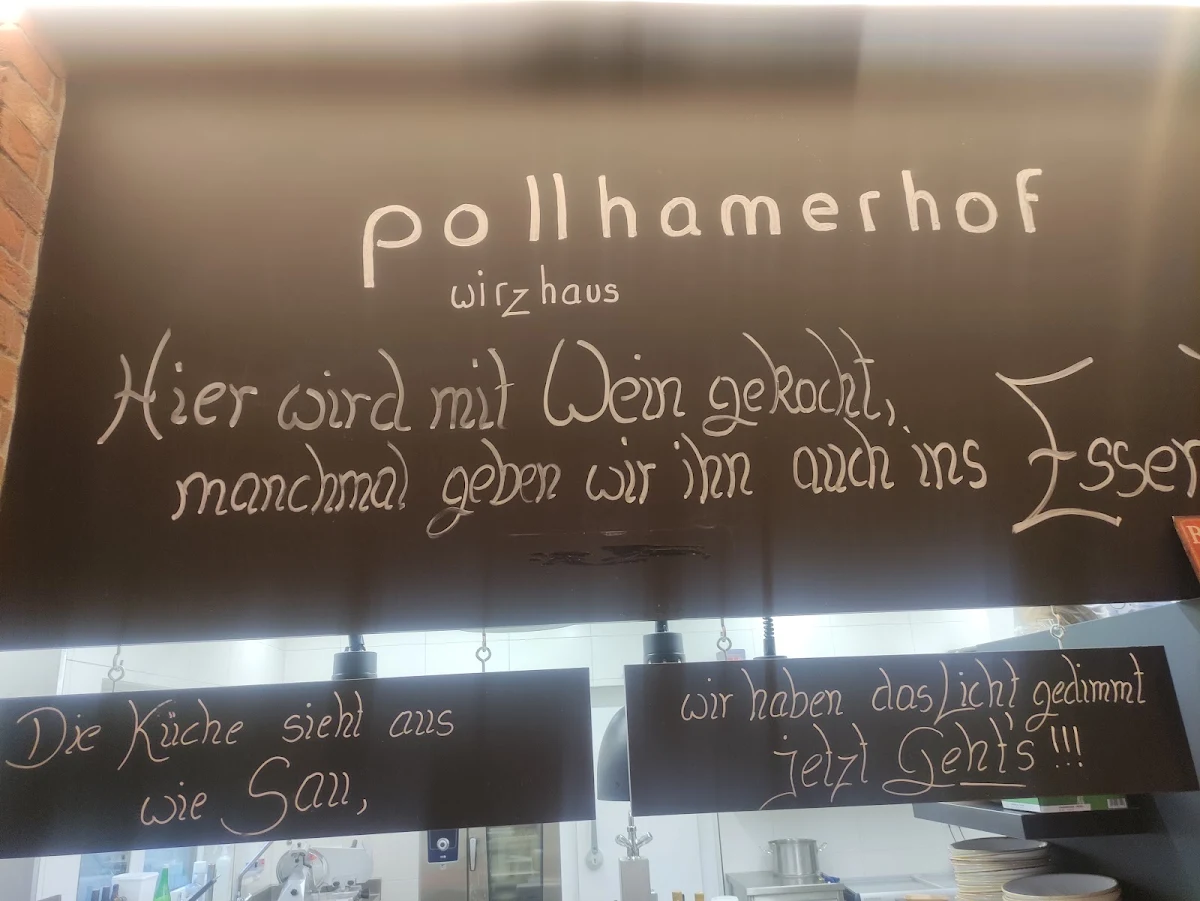 pollhamerhof
wirzhaus
Hier wird mit Wein gekocht,
manchmal geben wir ihn auch ins Essen
Die Küche sieht aus
wie Sau,
wir haben das Licht gedimmt
jetzt Geht's !!!